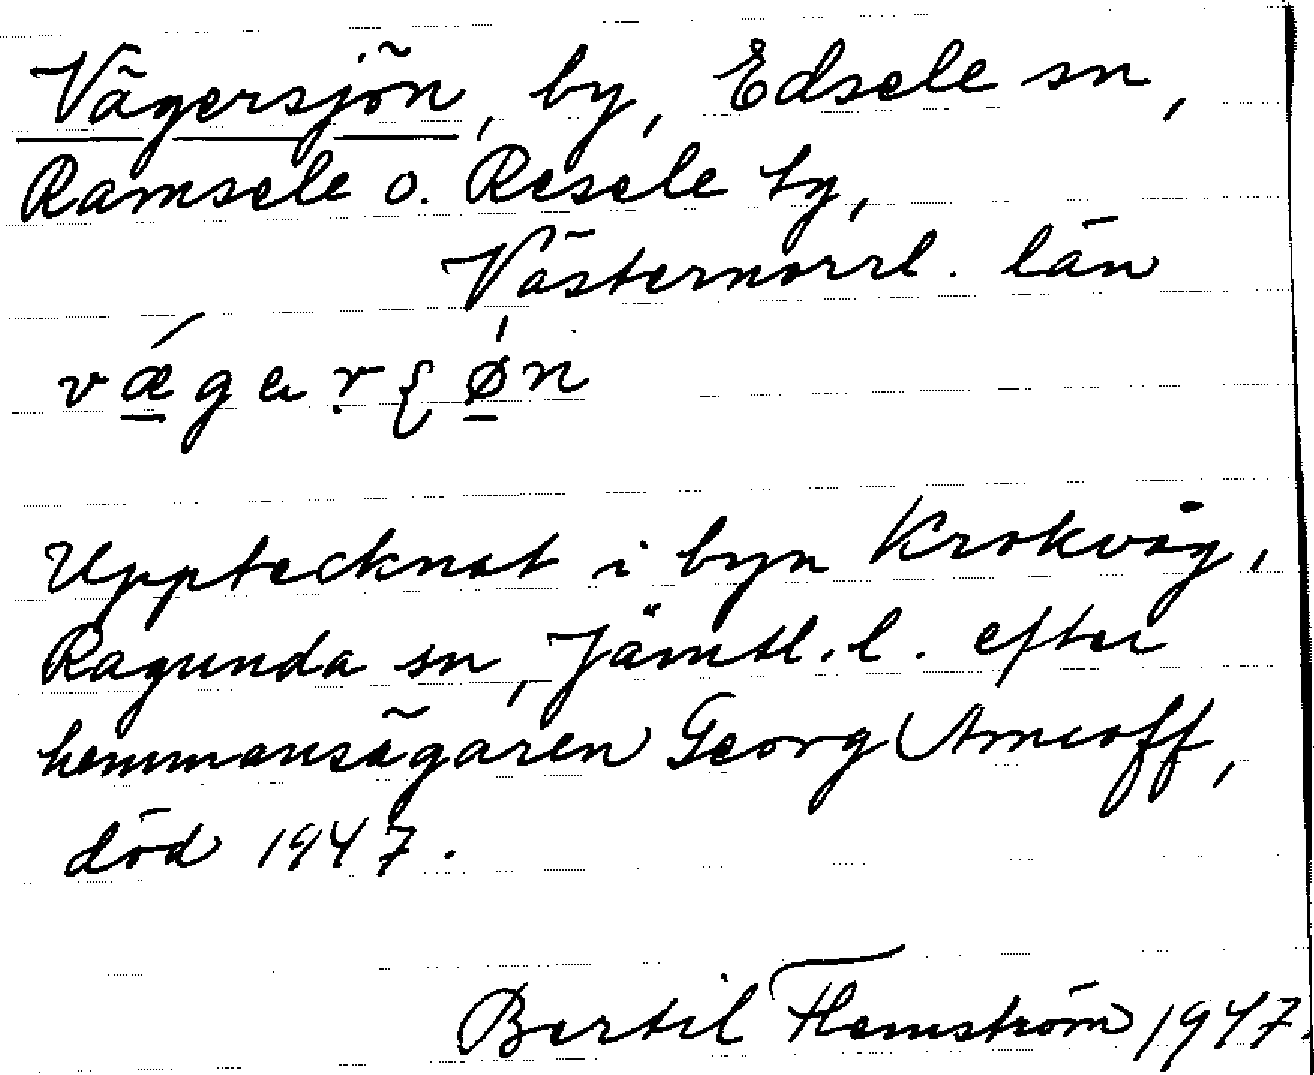 Vägersjön, by, Edsele sn,
Ramsele o. Resele tg,
Västernorrl. län
vǽgerʃø̍n
Upptecknat i byn Krokvåg,
Ragunda sn, Jämtl. l. efter
hemmansägaren Georg Amcoff,
död 1947.
Bertil Flemström 1947.